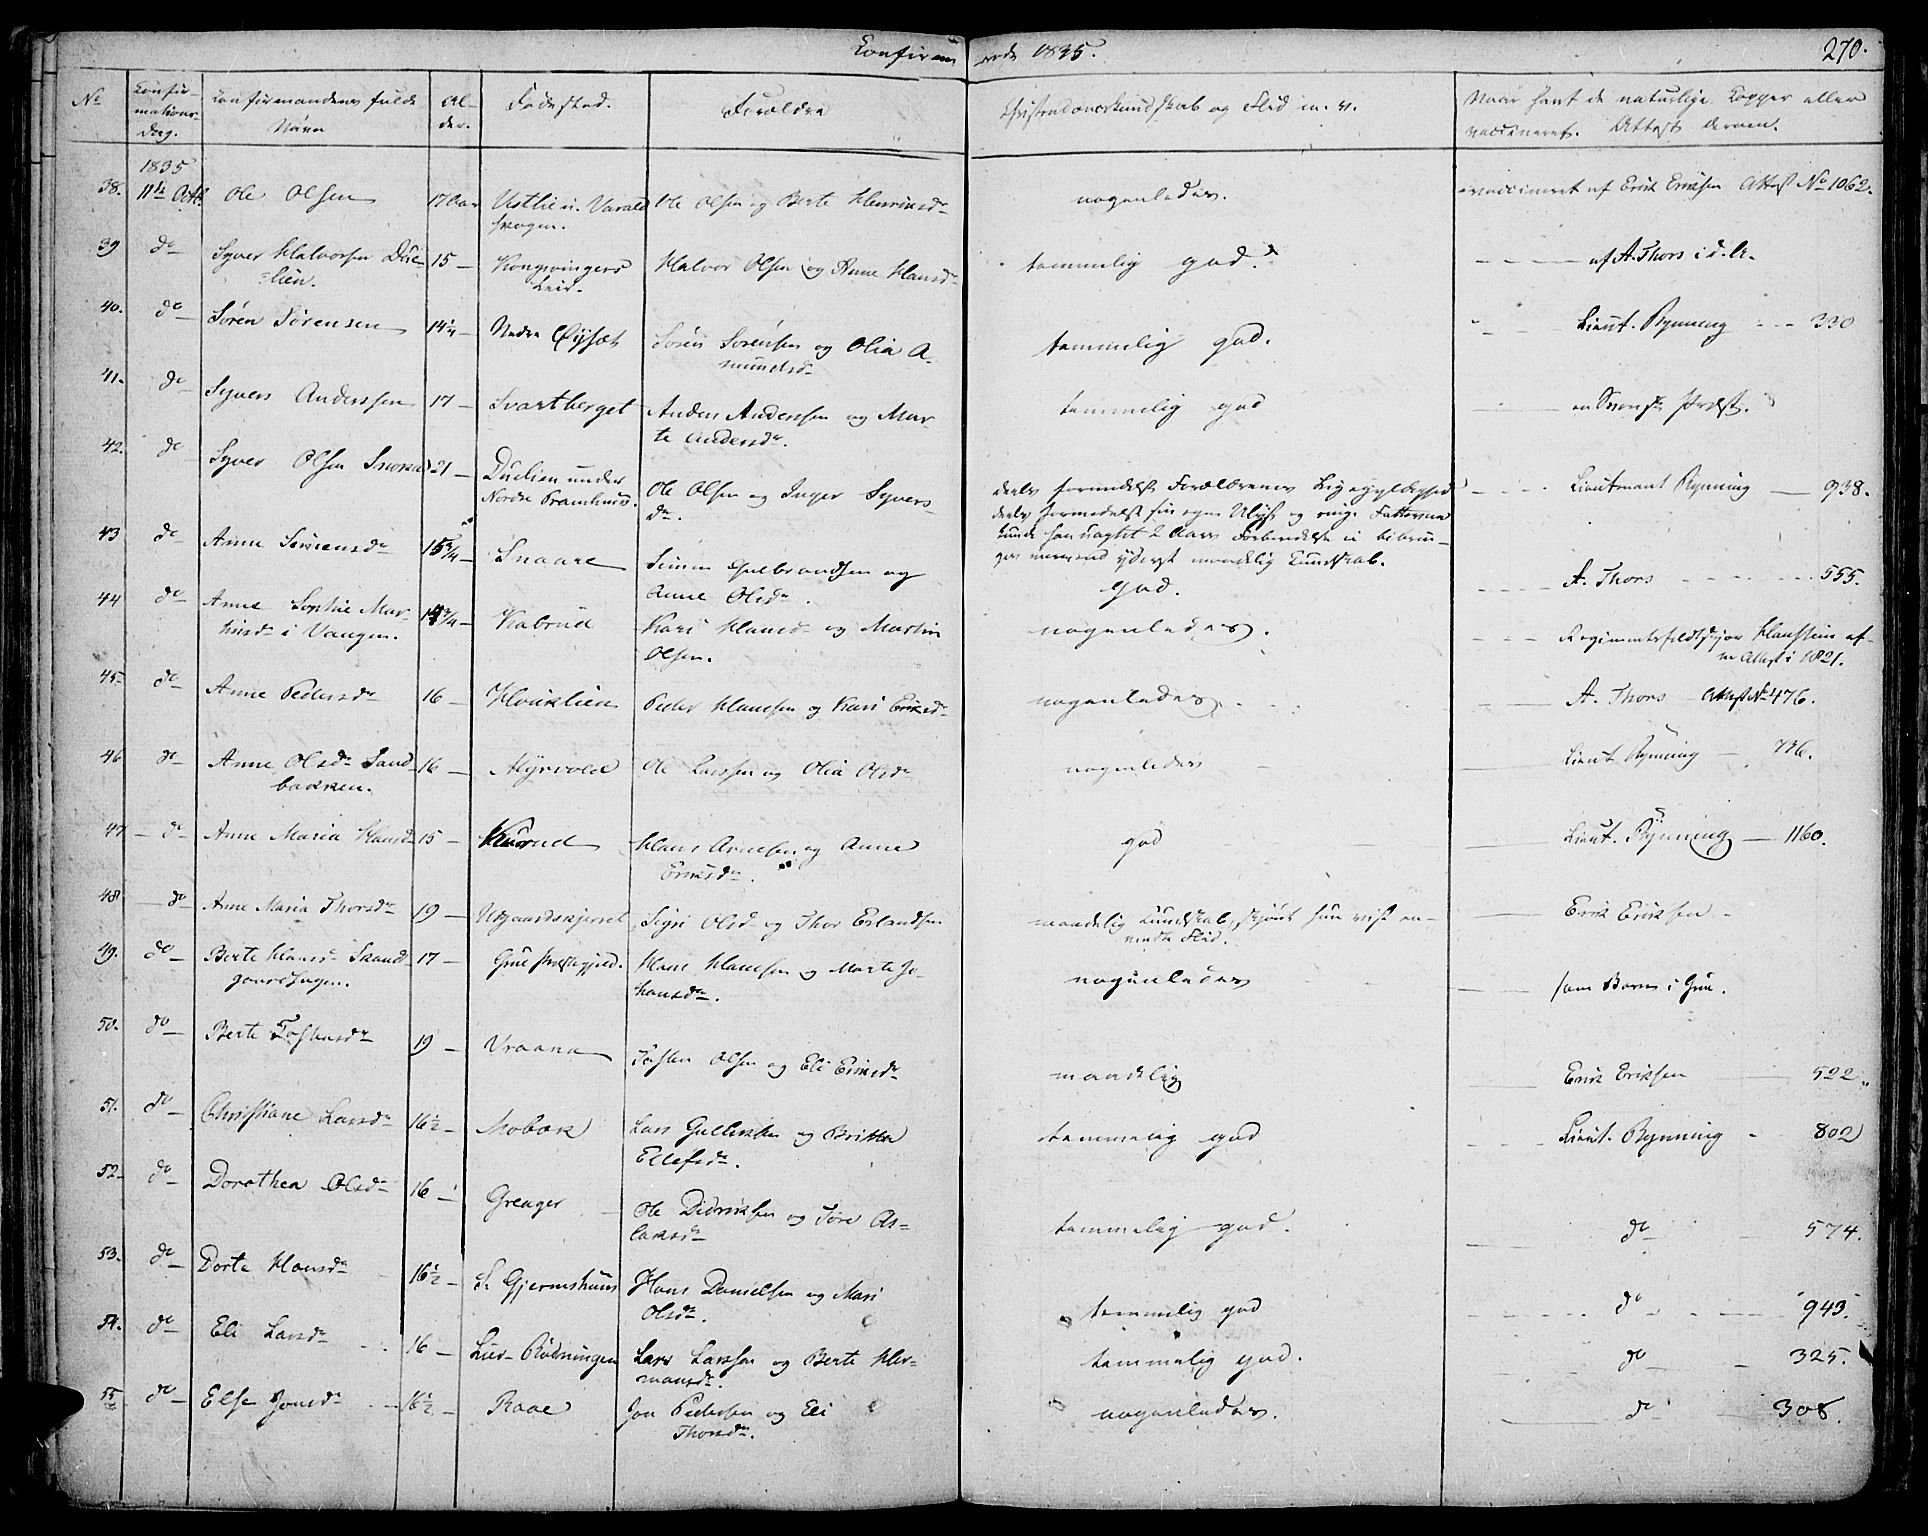 Confirmerede 1835. 270.
No Confirmations Dag. Confirmandens fulde Navn Alder. Födested. Forældre Christendomskundskab og Flid m. v. Naar havt de naturlige Kopper eller vaccineret. Attest derom.
1835
38. 11te Octb. Ole Olsen 17 Aar Vestlie i Varaldskogen. Ole Olsen og Berte Henriksdr nogenledes. vaccineret af Erik Eriksen Attest No 1062.
39 do Syver Halvorsen Duelien. 15 Kongsvingers Leir. Halvor Olsen og Anne Hansdr temmelig god. af A. Thors i d. A.
40. do Sören Sörensen 14½ Nedre Öysæt Sören Sörensen og Olia Amundsdr temmelig god. Lieut. Rynning 330
41. do Syvers Anderssen 17 Svartberget Anders Anderssen og Marte Andersdr. temmelig god en Svensk Præst.
42. do Syver Olsen 21 Duelien under Nordre Pramhuus. Ole Olsen og Inger Syversdr. deels formedelst Forældrenes Ligegyldighed
deels formedelst sin egen Ulyst og Fattevne
kunde han uagtet 2 Aars Forberedelse ei bibringes
mere end yderst maadelig Kundskab. Lieutenant Rynning 938.
43 do Anne Simensdr 15¾ Snaare Simen Gulbrandsen og Anne Olsdr. god. A. Thors 555.
44 do Anne Sophie Martinsdr i Vangen. 14¾ Kabrud Kari Hansdr og Martin Olsen. nogenledes. Regimentsfeldtskjær Hanstein efter Attest i 1821.
45 do Anne Pedersdr 16 Hvislien Peder Hansen og Kari Eriksdr nogenledes. A. Thors Attest No 476.
46 do Anne Olsdr Sandbakken. 16 Myrvold Ole Larssen og Olia Olsdr nogenledes Lieut Rynning 776.
47 do Anne Maria Hansdr 15 Kurud Hans Arnesen og Anne Eriksdr. god Lieut. Rynning 1160.
48 do Anne Maria Thorsdr 19 Udgaardskjernet Sigri Olsdr og Thor Erlandsen maadelig Kundskab, skjönt hun viste anvendte Flid. Erik Eriksen
49. do Berte Hansdr 17 Grue Præstegjeld. Hans Hansen og Marte Johansdr. nogenledes som Barn i Grue.
50. do Berte Tostensdr 19 Vraana Tosten Olsen og Eli Eriksdr maadelig Erik Eriksen 522
51. do Christiane Larsdr 16½ Mobæk Lars Gulliksen og Britha Ellefsdr. temmelig god Lieut. Rynning 802
52 do Dorothea Olsdr 16 Greager Ole Didriksen og Töre Aslaksdr temmelig god. do 574.
53. do Dorte Hansdr 16½ S. Gjermshuus Hans Danielsen og Mari Olsdr. temmelig god do 943
54. do Eli Larsdr 16 Lier-Rödningen Lars Larssen og Berte Hermansdr. temmelig god. do 325.
55 do Else Jonsdr 16½ Roae Jon Pedersen og Eli Thorsdr. nogenledes. do 308.